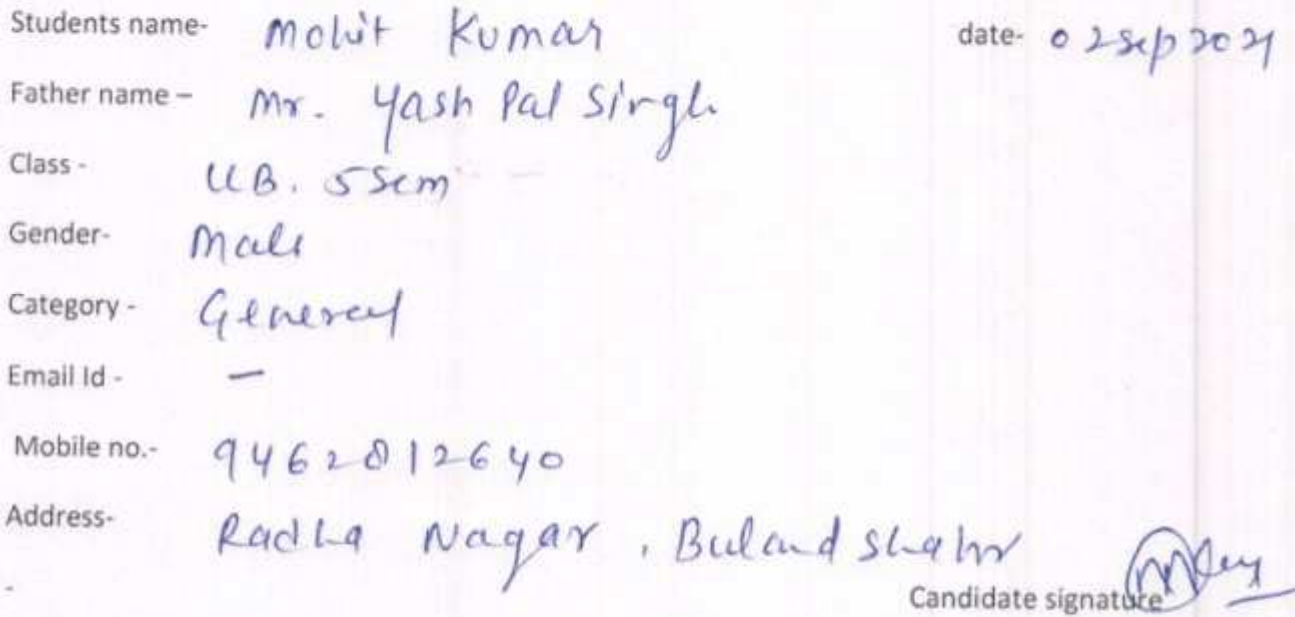 Students name- Mohit Kumar date- 02 Sep 2021
Father name – Mr. Yash Pal Singh
Class - LLB. 5 Sem
Gender- Male
Category - General
Email Id - –
Mobile no.- 9462812640
Address- Radha Nagar, Buland shahr
Candidate signature